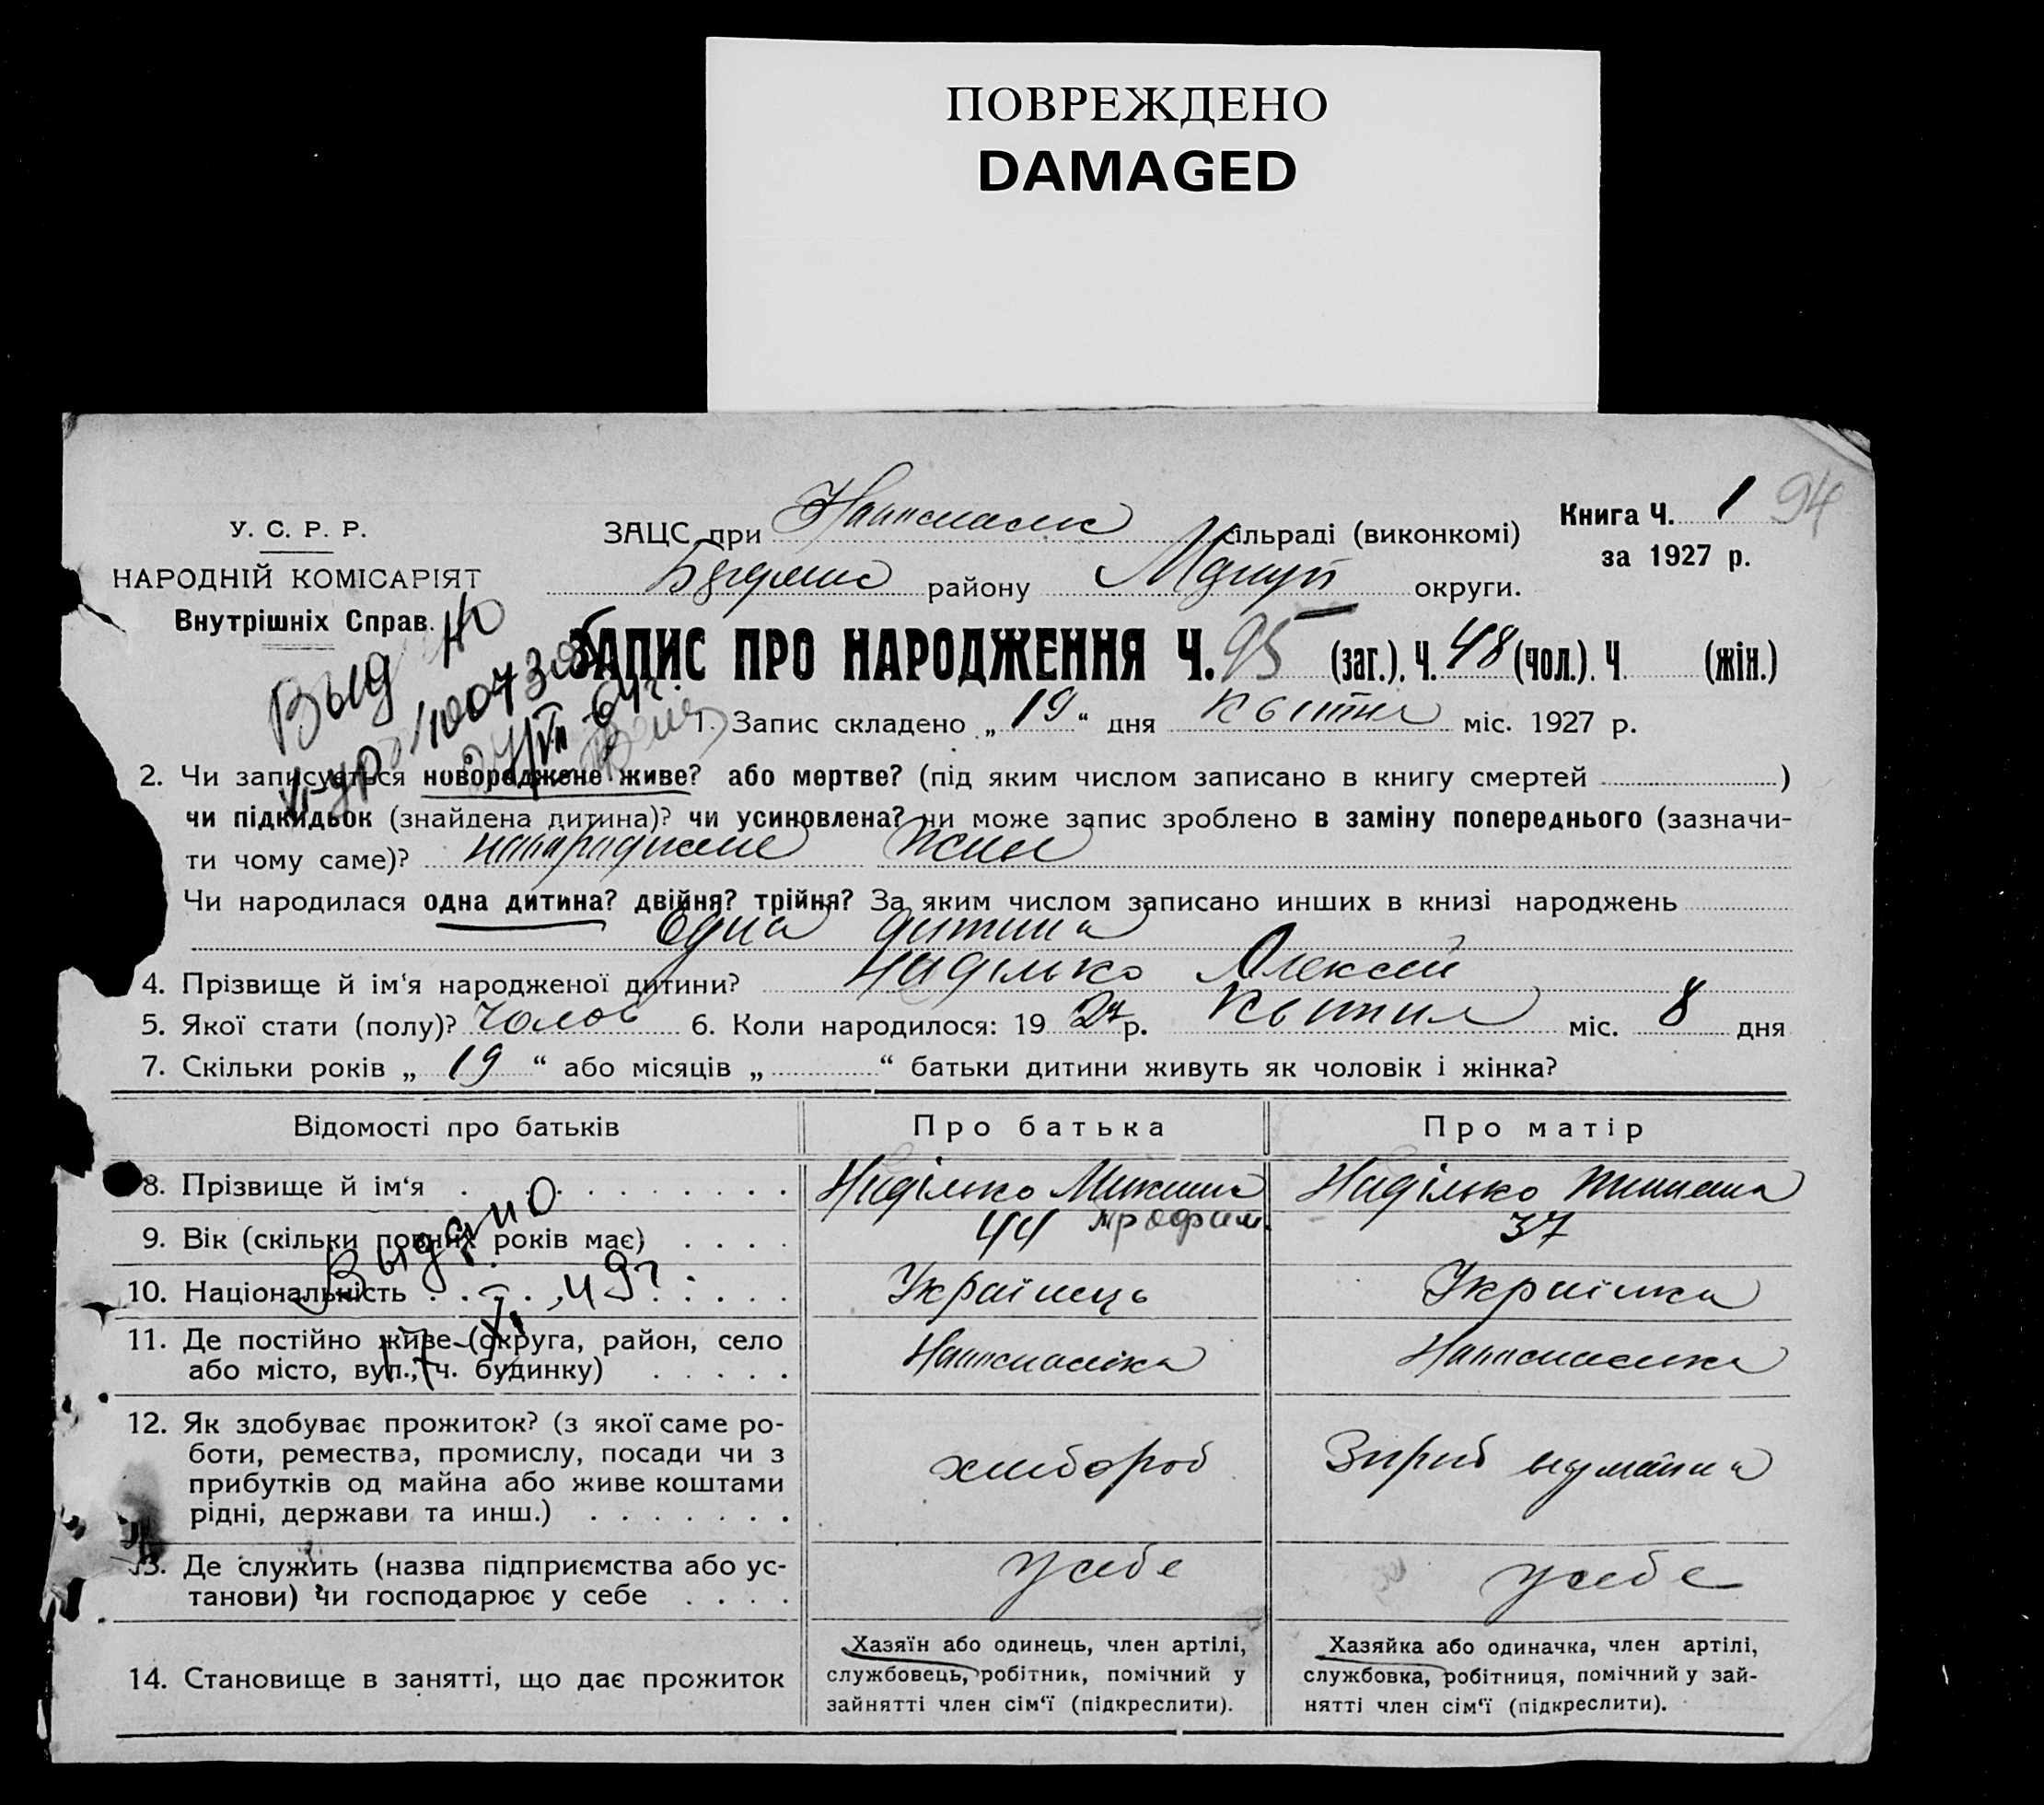 ПОВРЕЖДЕНО
DAMAGED
Книга Ч. 1 94
за 1927 р.
У. С. Р. Р.
НАРОДНІЙ КОМІСАРІЯТ
Внутрішніх Справ.
ЗАЦС при сільраді (виконкомі)
району округи.
ЗАПИС ПРО НАРОДЖЕННЯ Ч. 95 (заг.). Ч. 48 (чол.). Ч. (жін.)
1. Запис складено „ 19 “ дня Квітня міс. 1927 р.
2. Чи записується новороджене живе? або мертве? (під яким числом записано в книгу смертей )
чи підкидьок (знайдена дитина)? чи усиновлена? чи може запис зроблено в заміну попереднього (зазначи-
ти чому саме)?
Чи народилася одна дитина? двійня? трійня? За яким числом записано инших в книзі народжень
Одна дитина
4. Прізвище й ім‘я народженої дитини? Наділько Алексей
5. Якої стати (полу)? Чолов 6. Коли народилося: 19 27 р. Квітня міс. 8 дня
7. Скільки років „ 19 “ або місяців „ “ батьки дитини живуть як чоловік і жінка?
Відомості про батьків Про батька Про матір
8. Прізвище й ім‘я Наділько Трофим Наділько
9. Вік (скільки повних років має) 44 37
10. Національність Українець Українка
11. Де постійно живе (округа, район, село
або місто, вул., ч. будинку)
12. Як здобуває прожиток? (з якої саме ро-
боти, ремества, промислу, посади чи з
прибутків од майна або живе коштами
рідні, держави та инш.) хлибороб
13. Де служить (назва підприємства або ус-
танови) чи господарює у себе у себе у себе
14. Становище в занятті, що дає прожиток
Хазяїн або одинець, член артілі,
службовець, робітник, помічний у
зайнятті член сім‘ї (підкреслити).
Хазяйка або одиначка, член артілі,
службовка, робітниця, помічний у зай-
нятті член сім‘ї (підкреслити).
Выдано
17 XI 49г